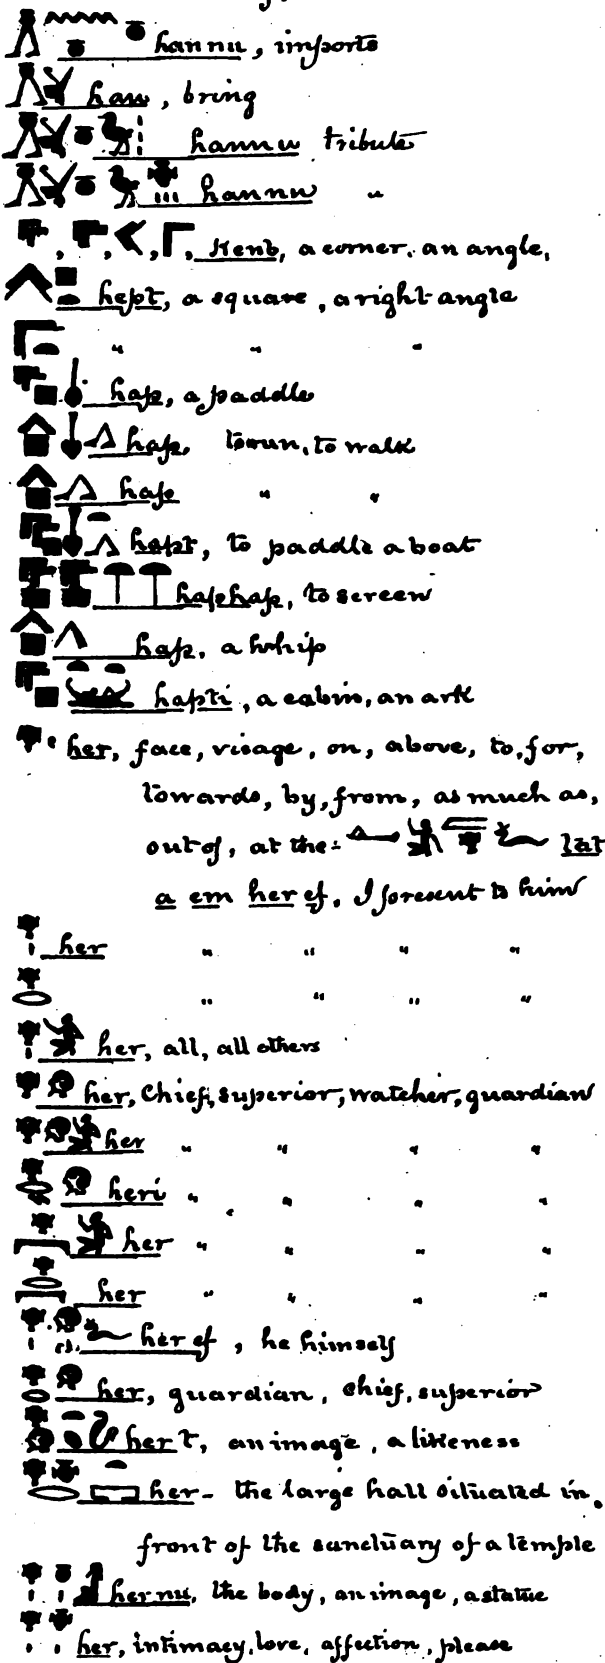 hannu, imports
han, bring
hannu tribute
hannu "
Kenb, a corner. an angle,
hept, a square, a right angle
" " "
hap, a paddle
hap, to run, to walk
hap " "
hapt, to paddle a boat
haphap, to screen
hap. a whip
hapti, a cabin, an ark
her, face, visage, on, above, to, for,
towards, by, from, as much as,
out of, at the:- tat
a em her ef. I present to him
her " " " "
" " " "
her, all, all others
her, chief, superior, watcher, guardian
her " " " "
heri " " " "
her " " " "
her " " " "
her ef, he himself
her, guardian, chief, superior
her t, an image, a likeness
her- the large hall situated in
front of the sanctuary of a temple
her nu, the body, an image, a statue
her, intimacy, love, affection, please